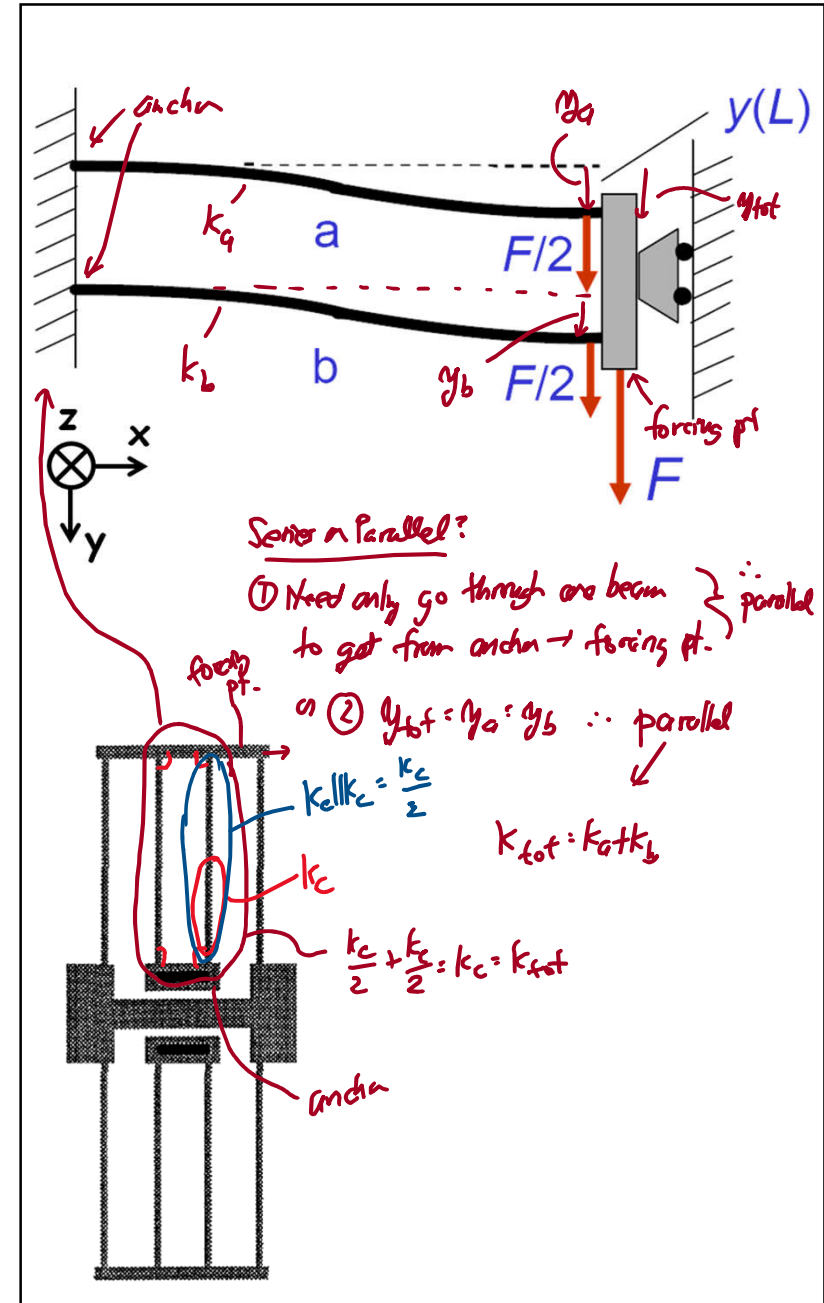 ancha
ya
y(L)
ytot
ka
a
F/2
kb
b
yb
F/2
forcing pt
F
z
x
y
Series or Parallel?
① Need only go through one beam
to get from ancha → forcing pt.
∴ parallel
or ② ytot = ya = yb ∴ parallel
forcing
pt.
kc||kc = kc/2
ktot = ka+kb
kc
kc/2 + kc/2 = kc = ktot
ancha